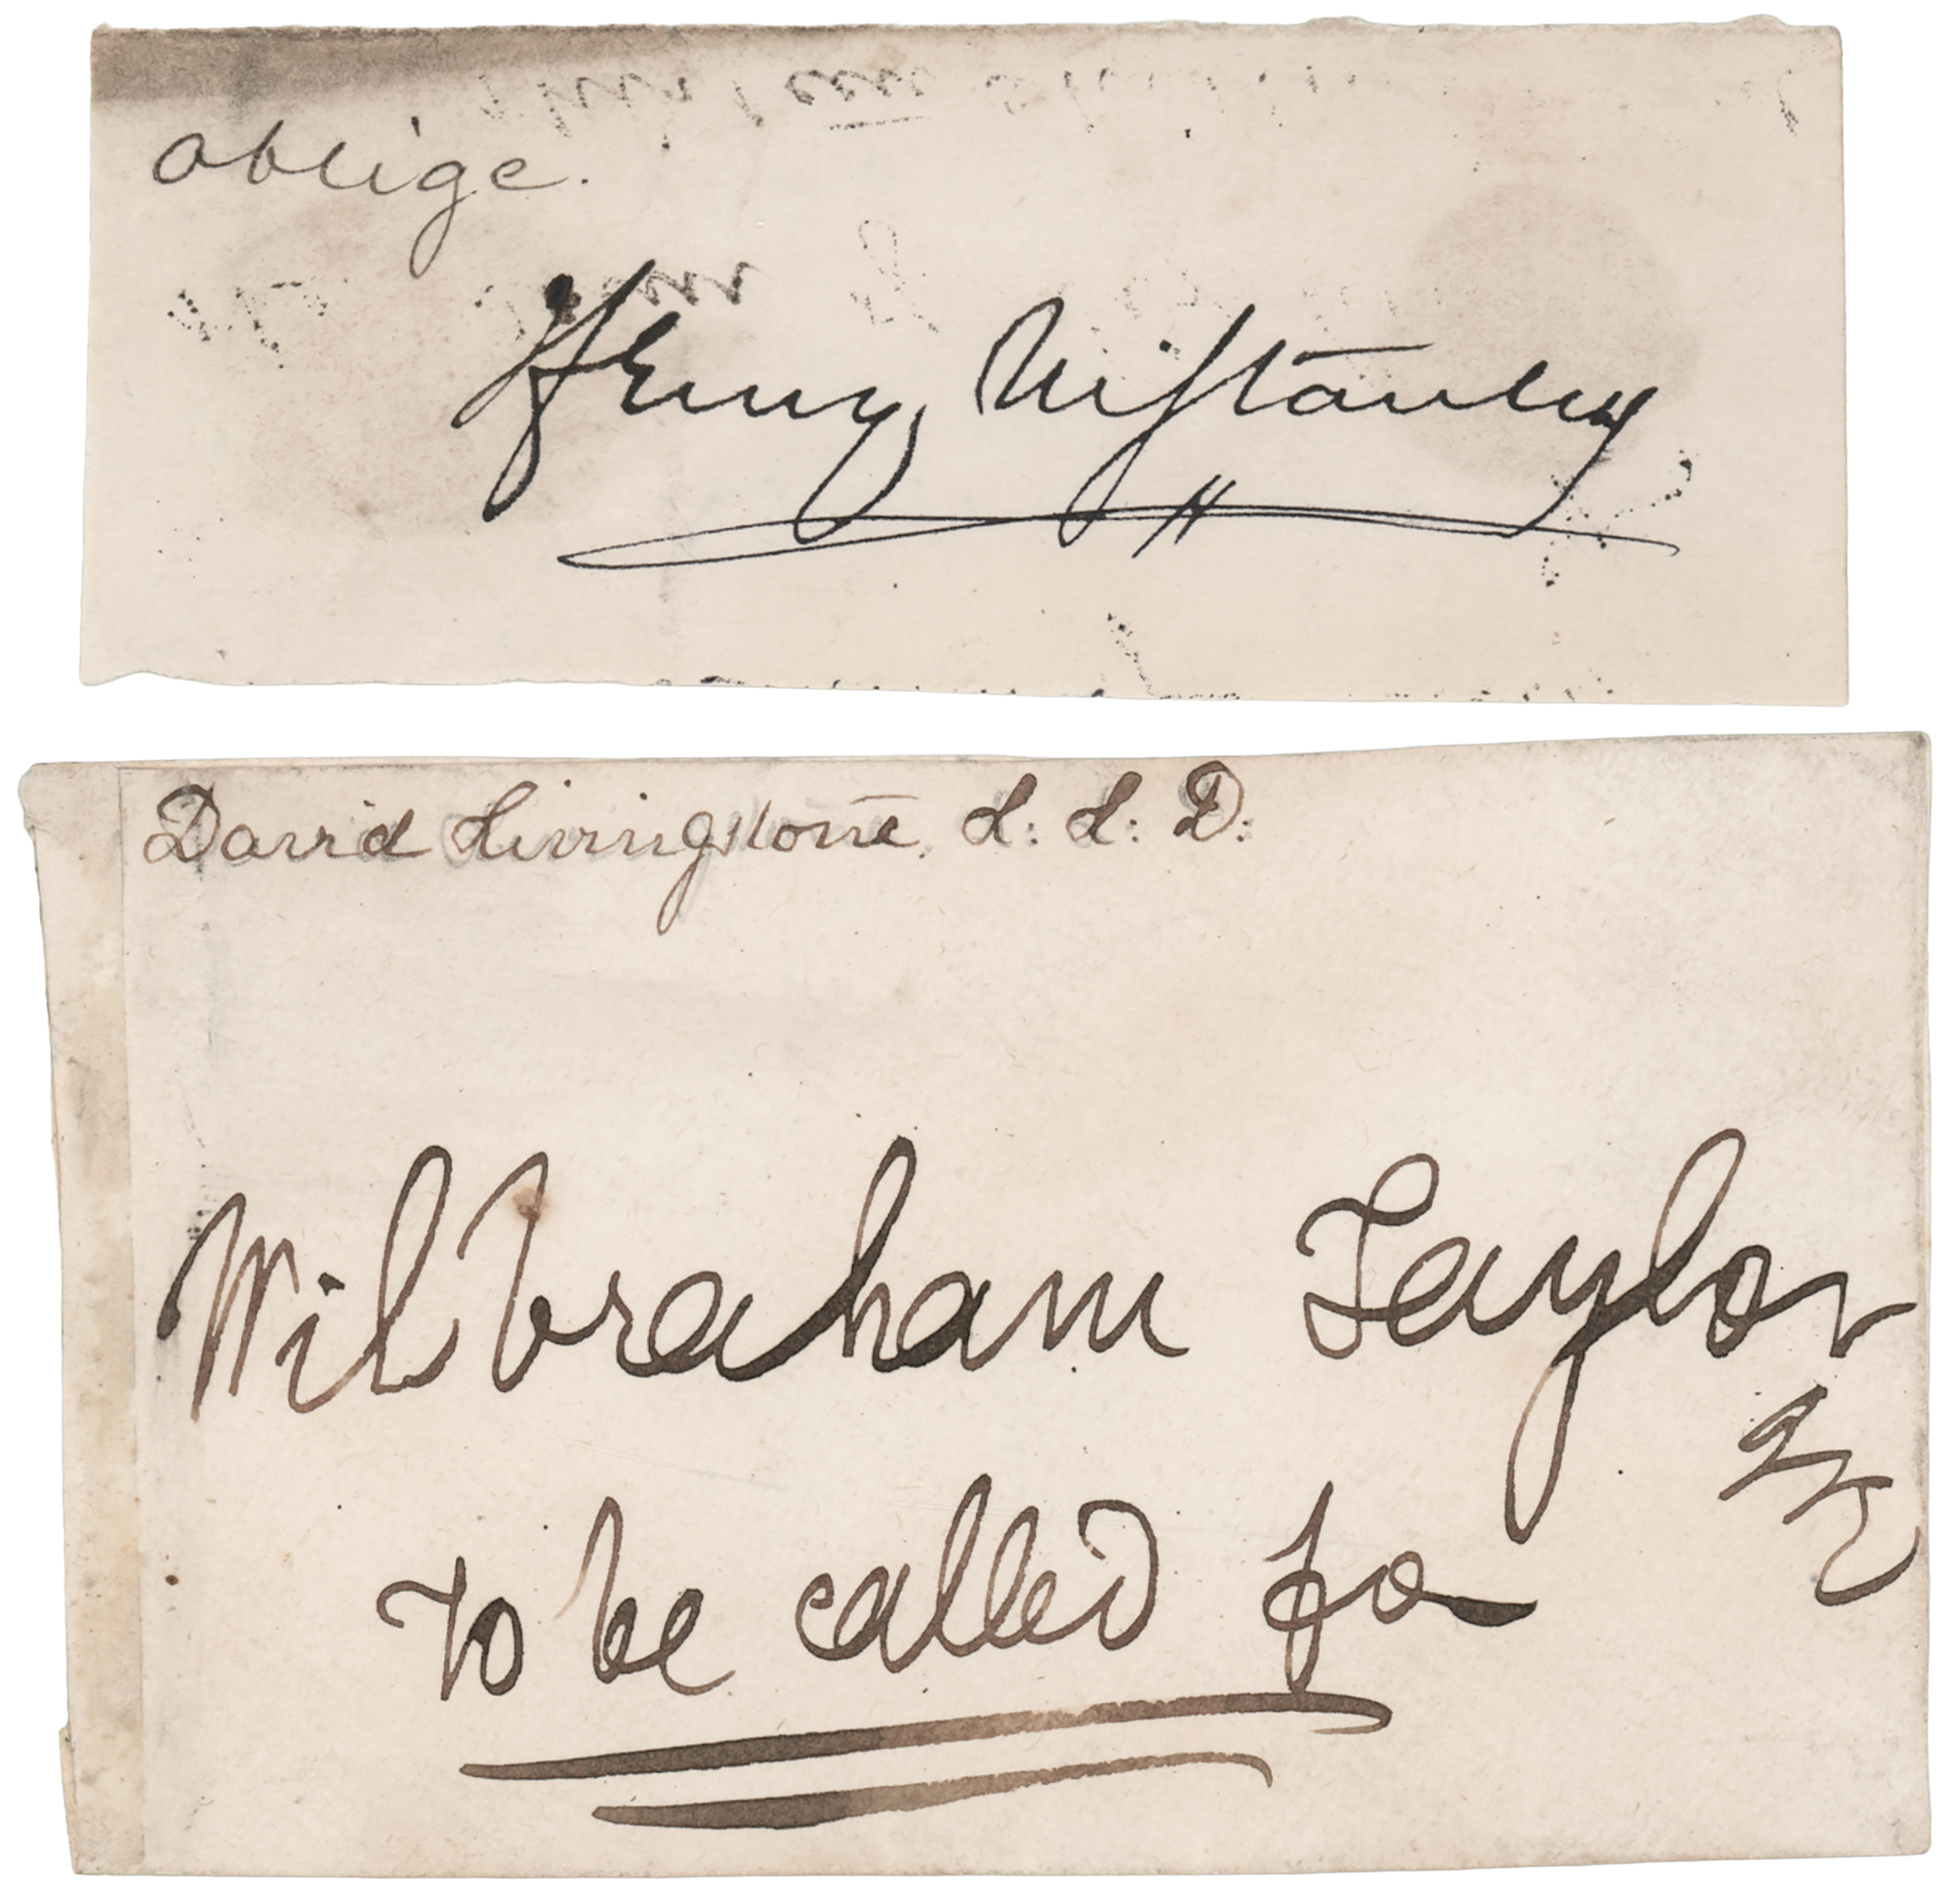 oblige.
Henry M Stanley
David Livingstone. L: L: D:
Wilbraham Taylor
To be called for